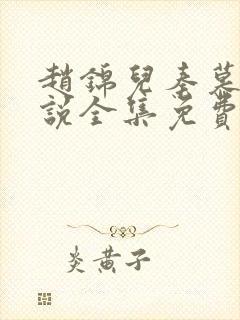 趙錦兒秦慕
說全集免費
炎黃子